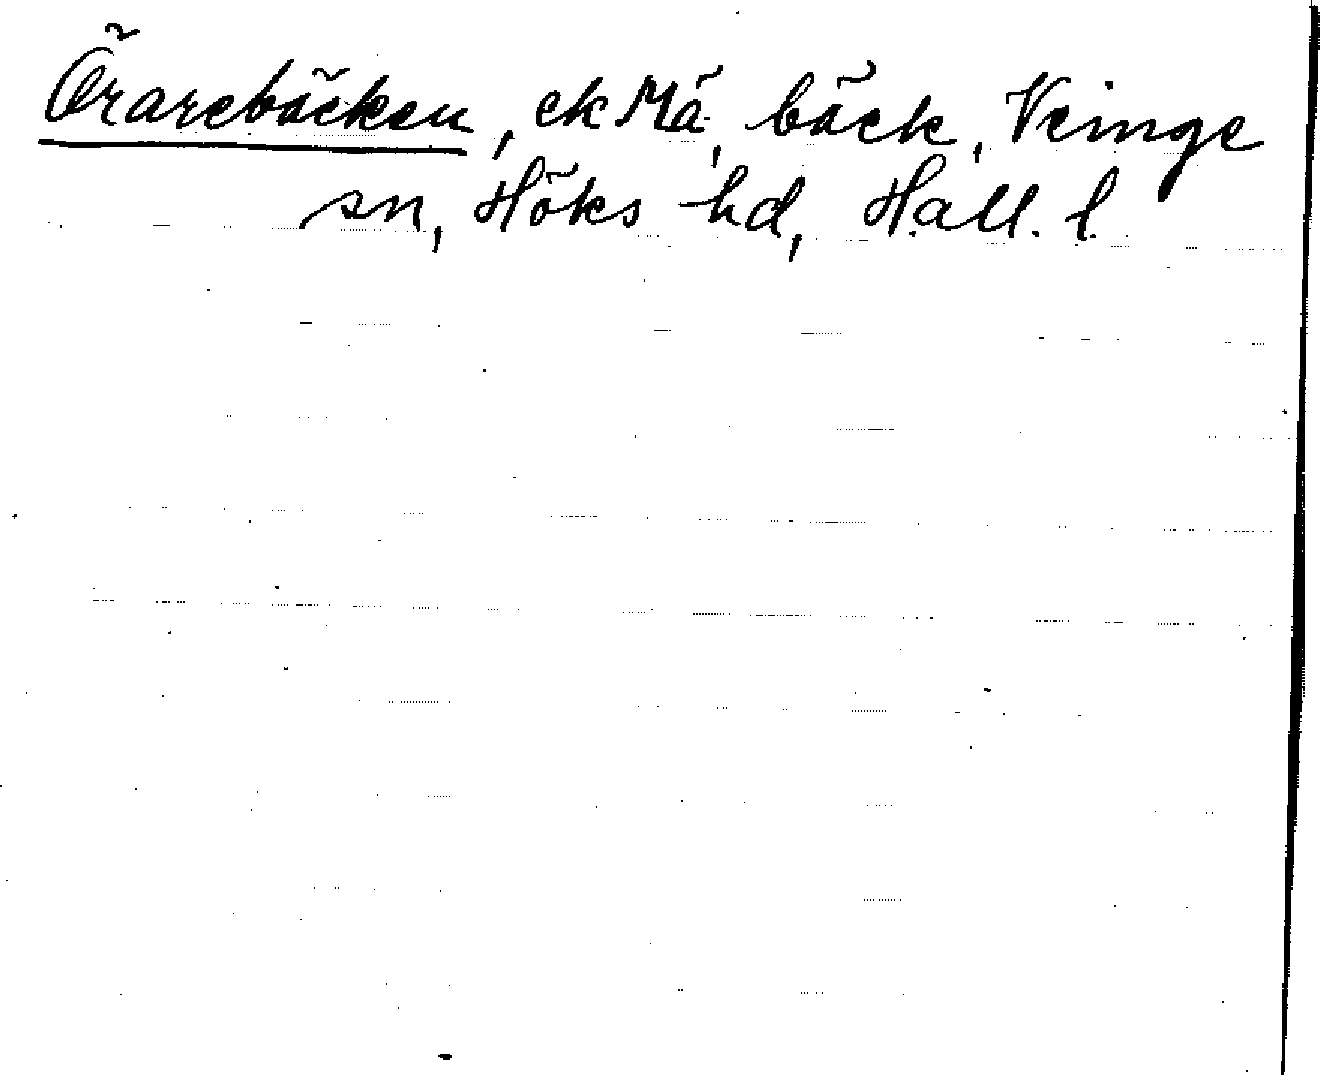 Örarebäcken, ek Mä, bäck, Veinge
sn, Höks hd, Hall. l.